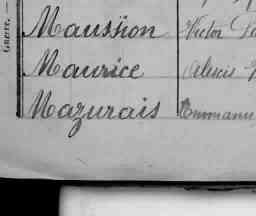 Guerre.
Maussion Victor
Maurice Alexis
Mazurais